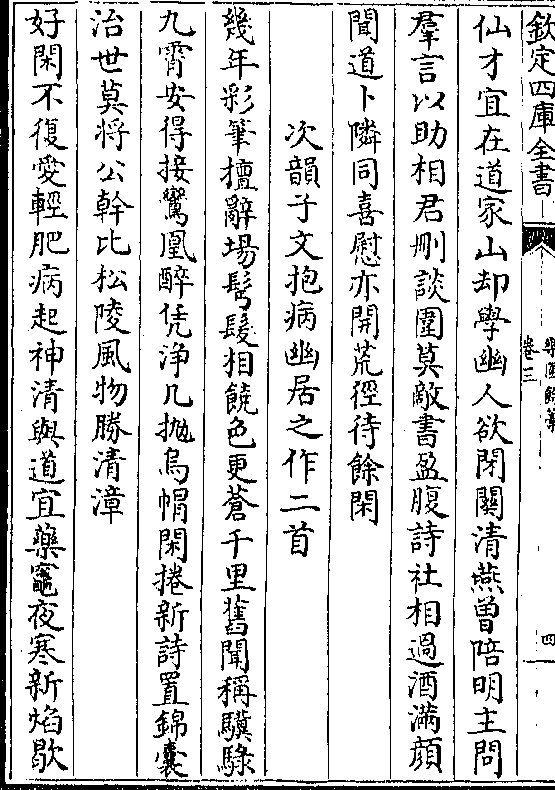 欽定四庫全書
卷三
四
仙才宜在道家山却學幽人欲閉關清燕曾陪明主問
羣言以助相君刪談圍莫敵書盈腹詩社相過酒滿顔
聞道卜隣同喜慰亦開荒徑待餘閑
次韻子文抱病幽居之作二首
幾年彩筆擅辭場髩髮相饒色更蒼千里舊聞稱驥騄
九霄安得接鸞凰醉凭淨几抛烏帽閑捲新詩置錦囊
治世莫將公幹比松陵風物勝清漳
好閑不復愛輕肥病起神清與道宜藥竈夜寒新焰歇